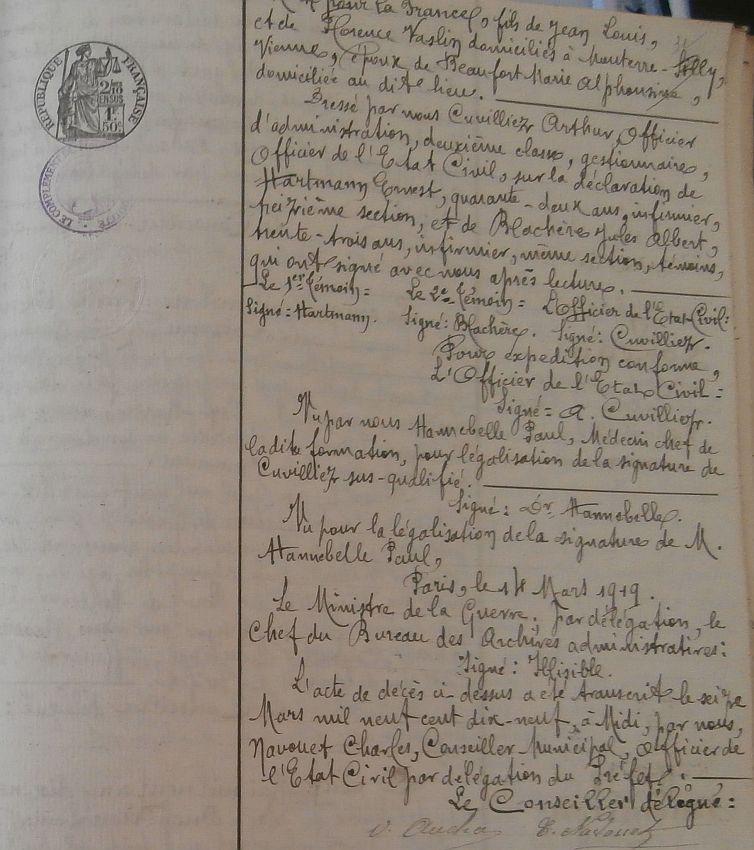 pour la France, fils de Jean Louis,
et de Florence Vaslin domiciliés à Mouterre-Silly,
Vienne, époux de Beaufort Marie Alphonsine,
domiciliée au dit lieu.
Dressé par nous Cuvilliez Arthur, Officier
d'administration, deuxième classe, gestionnaire,
Officier de l'Etat Civil, sur la déclaration de
Hartmann Ernest, quarante-deux ans, infirmier,
seizième section, et de Blachère Jules Albert,
trente-trois ans, infirmier, même section, témoins,
qui ont signé avec nous après lecture.
Le 1er Témoin= Le 2e Témoin= L'Officier de l'Etat-Civil:
Signé=Hartmann. Signé: Blachère. Signé: Cuvilliez.
Pour expédition conforme,
L'Officier de l'Etat Civil=
Signé= A. Cuvilliez.
Vu par nous Hannebelle Paul, Médecin chef de
ladite formation, pour légalisation de la signature de
Cuvilliez sus-qualifié.
Signé: Dr Hannebelle.
Vu pour la légalisation de la signature de M.
Hannebelle Paul,
Paris, le 14 Mars 1919.
Le Ministre de la Guerre. Par délégation, le
Chef du Bureau des Archives administratives:
Signé: Illisible.
L'acte de décès ci-dessus a été transcrit le seize
Mars mil neuf cent dix-neuf, à Midi, par nous,
Navouet Charles, Conseiller Municipal, Officier de
l'Etat Civil par délégation du Préfet.
Le Conseiller délégué:
REPUBLIQUE FRANÇAISE
2/10 EN SUS
1F 50c
LE COMPLEMENT